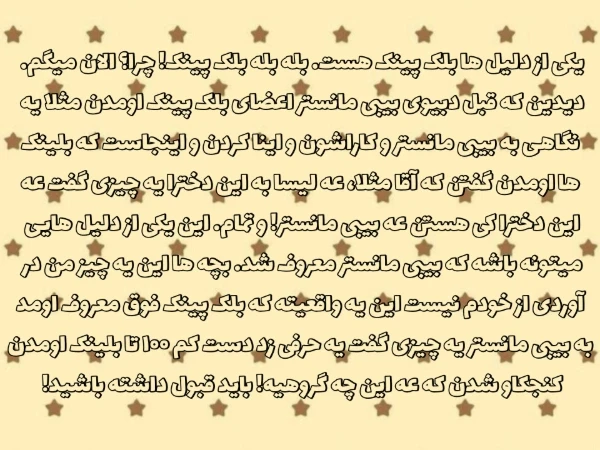 یکی از دلیل ها بلک پینک هست. بله بله بلک پینک! چرا؟ الان میگم.
دیدین که قبل دبیوی بیبی مانستر اعضای بلک پینک اومدن مثلا یه
نگاهی به بیبی مانستر و کاراشون و اینا کردن و اینجاست که بلینک
ها اومدن گفتن که آقا مثلا، عه لیسا به این دخترا یه چیزی گفت عه
این دخترا کی هستن عه بیبی مانستر! و تمام. این یکی از دلیل هایی
میتونه باشه که بیبی مانستر معروف شد. بچه ها این یه چیز من در
آوردی از خودم نیست این یه واقعیته که بلک پینک فوق معروف اومد
به بیبی مانستر یه چیزی گفت یه حرفی زد دست کم ۱۰۰ تا بلینک اومدن
کنجکاو شدن که عه این چه گروهیه! باید قبول داشته باشید!